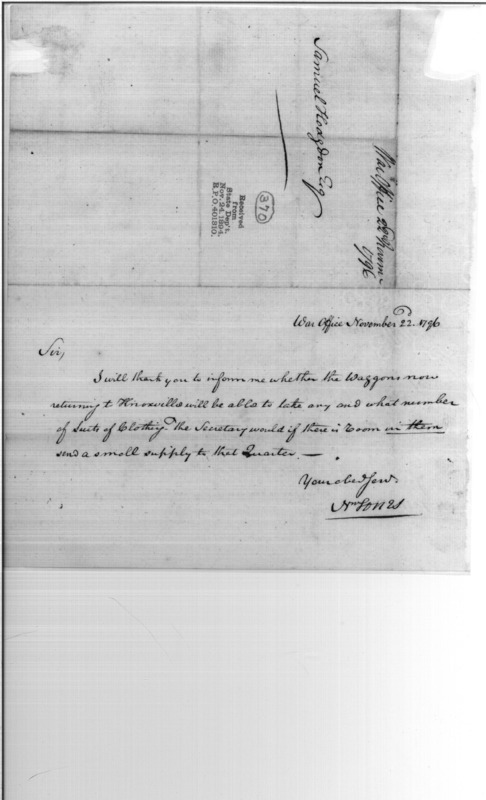 Samuel Hodgdon Esq
War Office 22nd Novem
1796
370
Received
from
State Dep't.
Nov. 24, 1894.
R.P.O. 401810.
War Office November 22d. 1796
Sir,
I will thank you to inform me whether the Waggons now
returning to Knoxville will be able to take any and what number
of Suits of Clothing the Secretary would if there is room in them
send a small supply to that Quarter. —
Your obed Serv.
Wm Jones